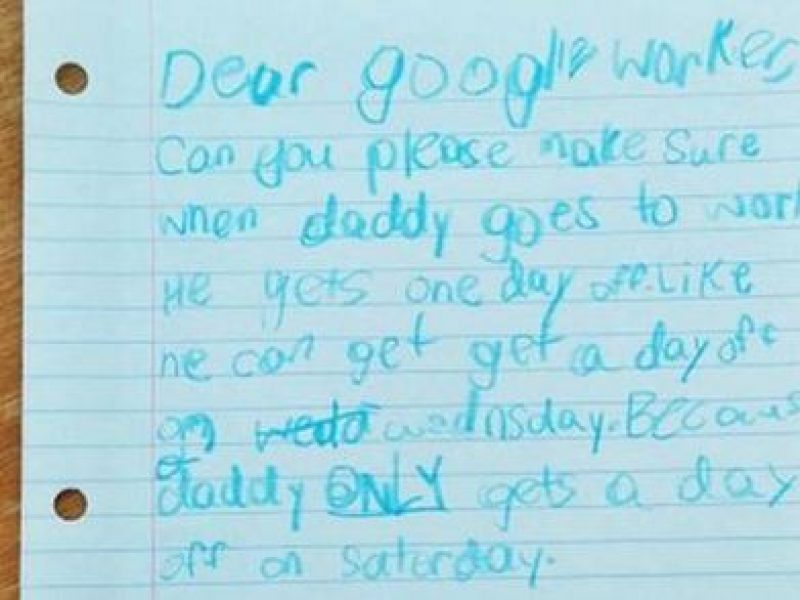 Dear google worker
Can you please make sure
when daddy goes to work
He gets one day off. Like
he can get get a day off
on wednsday. Becaus
daddy ONLY gets a day
off on saturday.